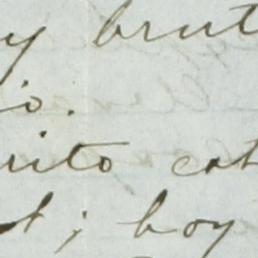 y brut
io.
uito cat
t; boy